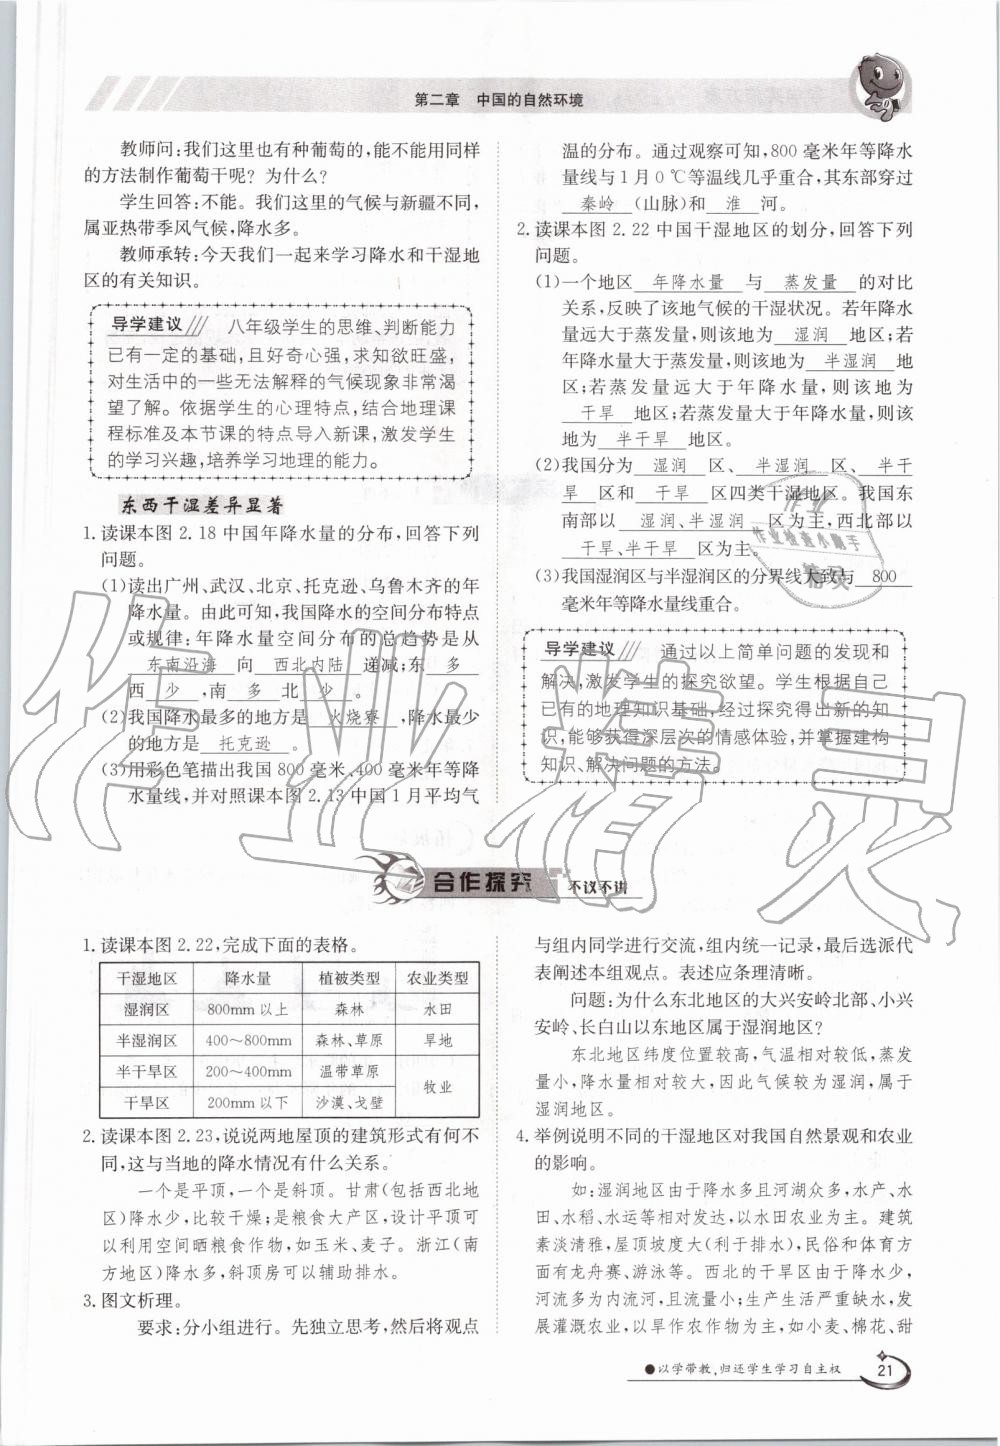 第二章 中国的自然环境
教师问:我们这里也有种葡萄的,能不能用同样
的方法制作葡萄干呢? 为什么?
学生回答:不能。我们这里的气候与新疆不同,
属亚热带季风气候,降水多。
教师承转:今天我们一起来学习降水和干湿地
区的有关知识。
导学建议/// 八年级学生的思维、判断能力
已有一定的基础,且好奇心强,求知欲旺盛,
对生活中的一些无法解释的气候现象非常渴
望了解。依据学生的心理特点,结合地理课
程标准及本节课的特点导入新课,激发学生
的学习兴趣,培养学习地理的能力。
东西干湿差异显著
1. 读课本图 2.18 中国年降水量的分布,回答下列
问题。
(1)读出广州、武汉、北京、托克逊、乌鲁木齐的年
降水量。由此可知,我国降水的空间分布特点
或规律:年降水量空间分布的总趋势是从
东南沿海 向 西北内陆 递减;东 多
西 少 ,南 多 北 少 。
(2)我国降水最多的地方是 火烧寮 ,降水最少
的地方是 托克逊 。
(3)用彩色笔描出我国 800 毫米、400 毫米年等降
水量线,并对照课本图 2.13 中国 1 月平均气
温的分布。通过观察可知,800 毫米年等降水
量线与 1 月 0 ℃等温线几乎重合,其东部穿过
秦岭 (山脉)和 淮 河。
2. 读课本图 2.22 中国干湿地区的划分,回答下列
问题。
(1)一个地区 年降水量 与 蒸发量 的对比
关系,反映了该地气候的干湿状况。若年降水
量远大于蒸发量,则该地为 湿润 地区;若
年降水量大于蒸发量,则该地为 半湿润 地
区;若蒸发量远大于年降水量,则该地为
干旱 地区;若蒸发量大于年降水量,则该
地为 半干旱 地区。
(2)我国分为 湿润 区、 半湿润 区、 半干
旱 区和 干旱 区四类干湿地区。我国东
南部以 湿润、半湿润 区为主,西北部以
干旱、半干旱 区为主。
(3)我国湿润区与半湿润区的分界线大致与 800
毫米年等降水量线重合。
导学建议/// 通过以上简单问题的发现和
解决,激发学生的探究欲望。学生根据自己
已有的地理知识基础,经过探究得出新的知
识,能够获得深层次的情感体验,并掌握建构
知识、解决问题的方法。
合作探究 不议不讲
1. 读课本图 2.22,完成下面的表格。
干湿地区 降水量 植被类型 农业类型
湿润区 800mm 以上 森林 水田
半湿润区 400～800mm 森林、草原 旱地
半干旱区 200～400mm 温带草原 牧业
干旱区 200mm 以下 沙漠、戈壁
2. 读课本图 2.23,说说两地屋顶的建筑形式有何不
同,这与当地的降水情况有什么关系。
一个是平顶,一个是斜顶。甘肃(包括西北地
区)降水少,比较干燥;是粮食大产区,设计平顶可
以利用空间晒粮食作物,如玉米、麦子。浙江(南
方地区)降水多,斜顶房可以辅助排水。
3. 图文析理。
要求:分小组进行。先独立思考,然后将观点
与组内同学进行交流,组内统一记录,最后选派代
表阐述本组观点。表述应条理清晰。
问题:为什么东北地区的大兴安岭北部、小兴
安岭、长白山以东地区属于湿润地区?
东北地区纬度位置较高,气温相对较低,蒸发
量小,降水量相对较大,因此气候较为湿润,属于
湿润地区。
4. 举例说明不同的干湿地区对我国自然景观和农业
的影响。
如:湿润地区由于降水多且河湖众多,水产、水
田、水稻、水运等相对发达,以水田农业为主。建筑
素淡清雅,屋顶坡度大(利于排水),民俗和体育方
面有龙舟赛、游泳等。西北的干旱区由于降水少,
河流多为内流河,且流量小;生产生活严重缺水,发
展灌溉农业,以旱作农作物为主,如小麦、棉花、甜
●以学带教,归还学生学习自主权
21
作业
作业检查小助手
精灵
作业精灵